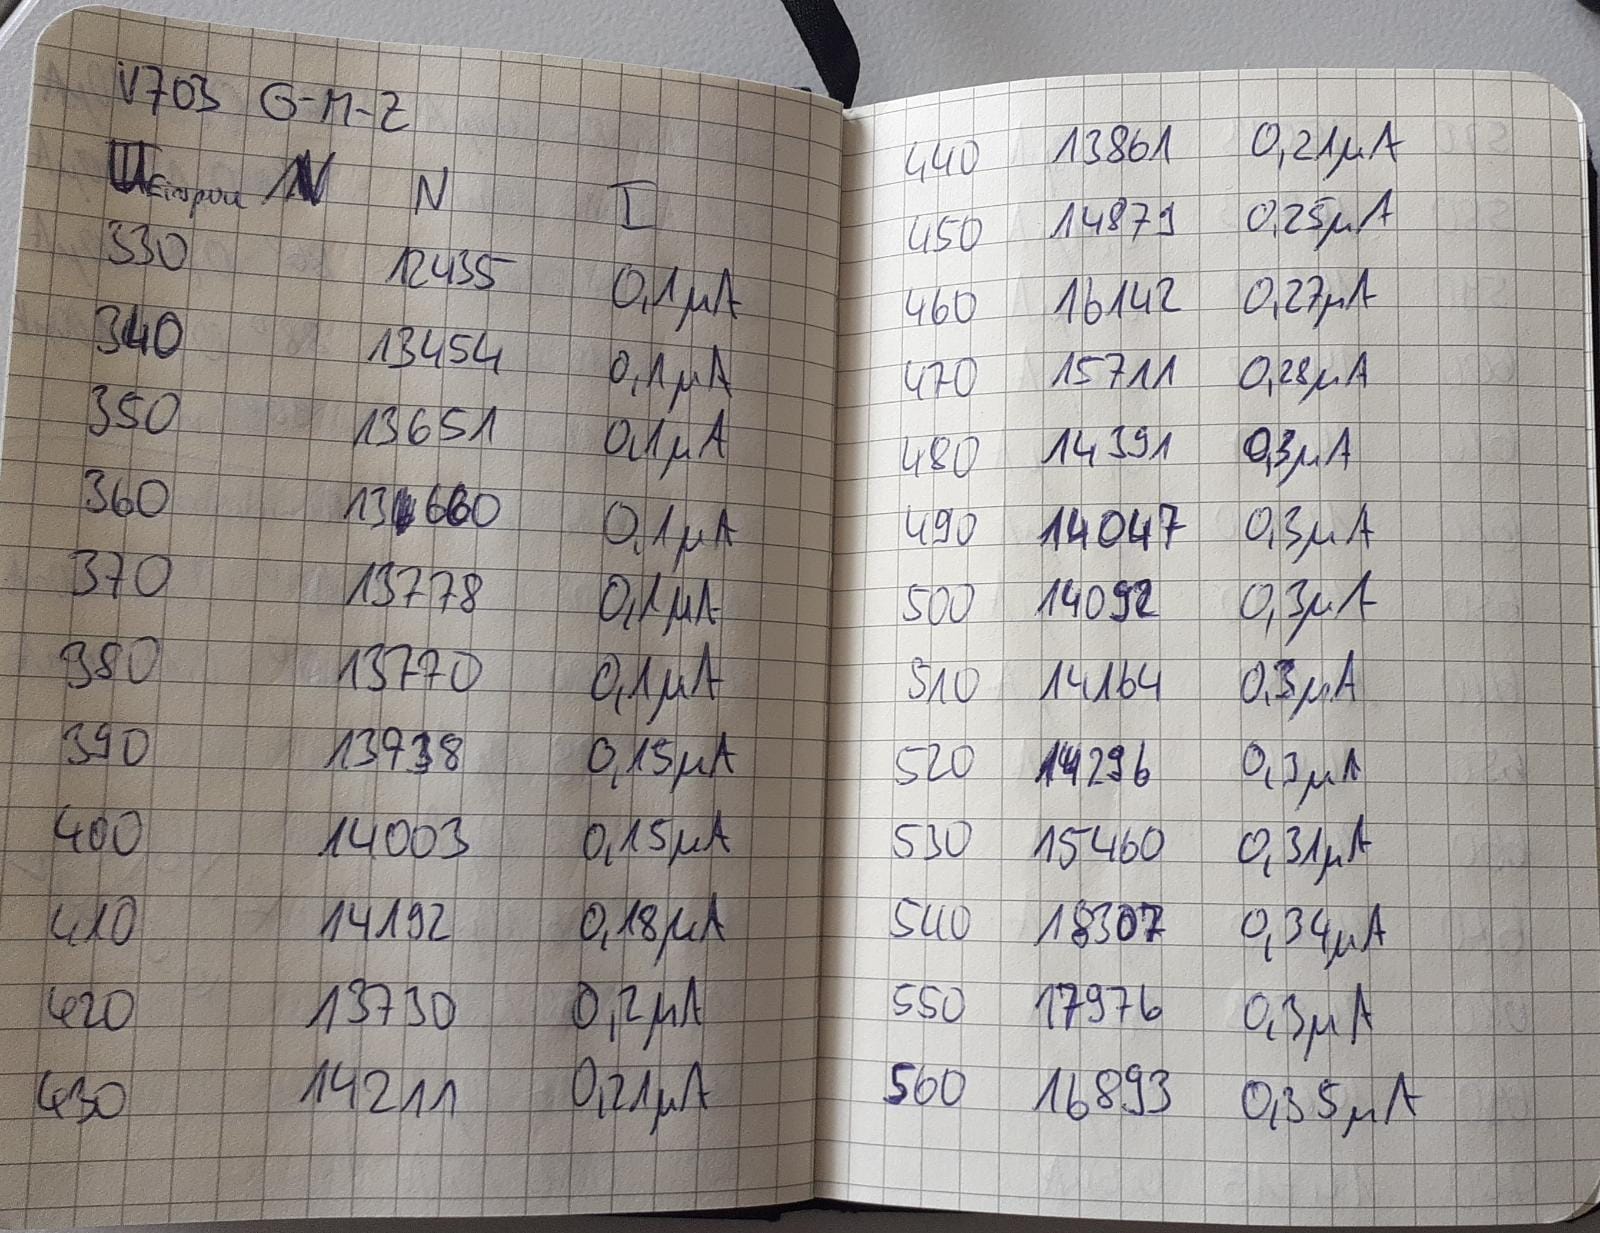 V703 G-M-Z
N I
330 12435 0,1µA
340 13454 0,1µA
350 13651 0,1µA
360 13660 0,1µA
370 13778 0,1µA
380 13770 0,1µA
390 13938 0,15µA
400 14003 0,15µA
410 14192 0,18µA
420 13730 0,2µA
430 14211 0,21µA
440 13861 0,21µA
450 14879 0,25µA
460 16142 0,27µA
470 15711 0,28µA
480 14391 0,3µA
490 14047 0,3µA
500 14092 0,3µA
510 14164 0,3µA
520 14296 0,3µA
530 15460 0,31µA
540 18307 0,34µA
550 17976 0,3µA
560 16893 0,35µA